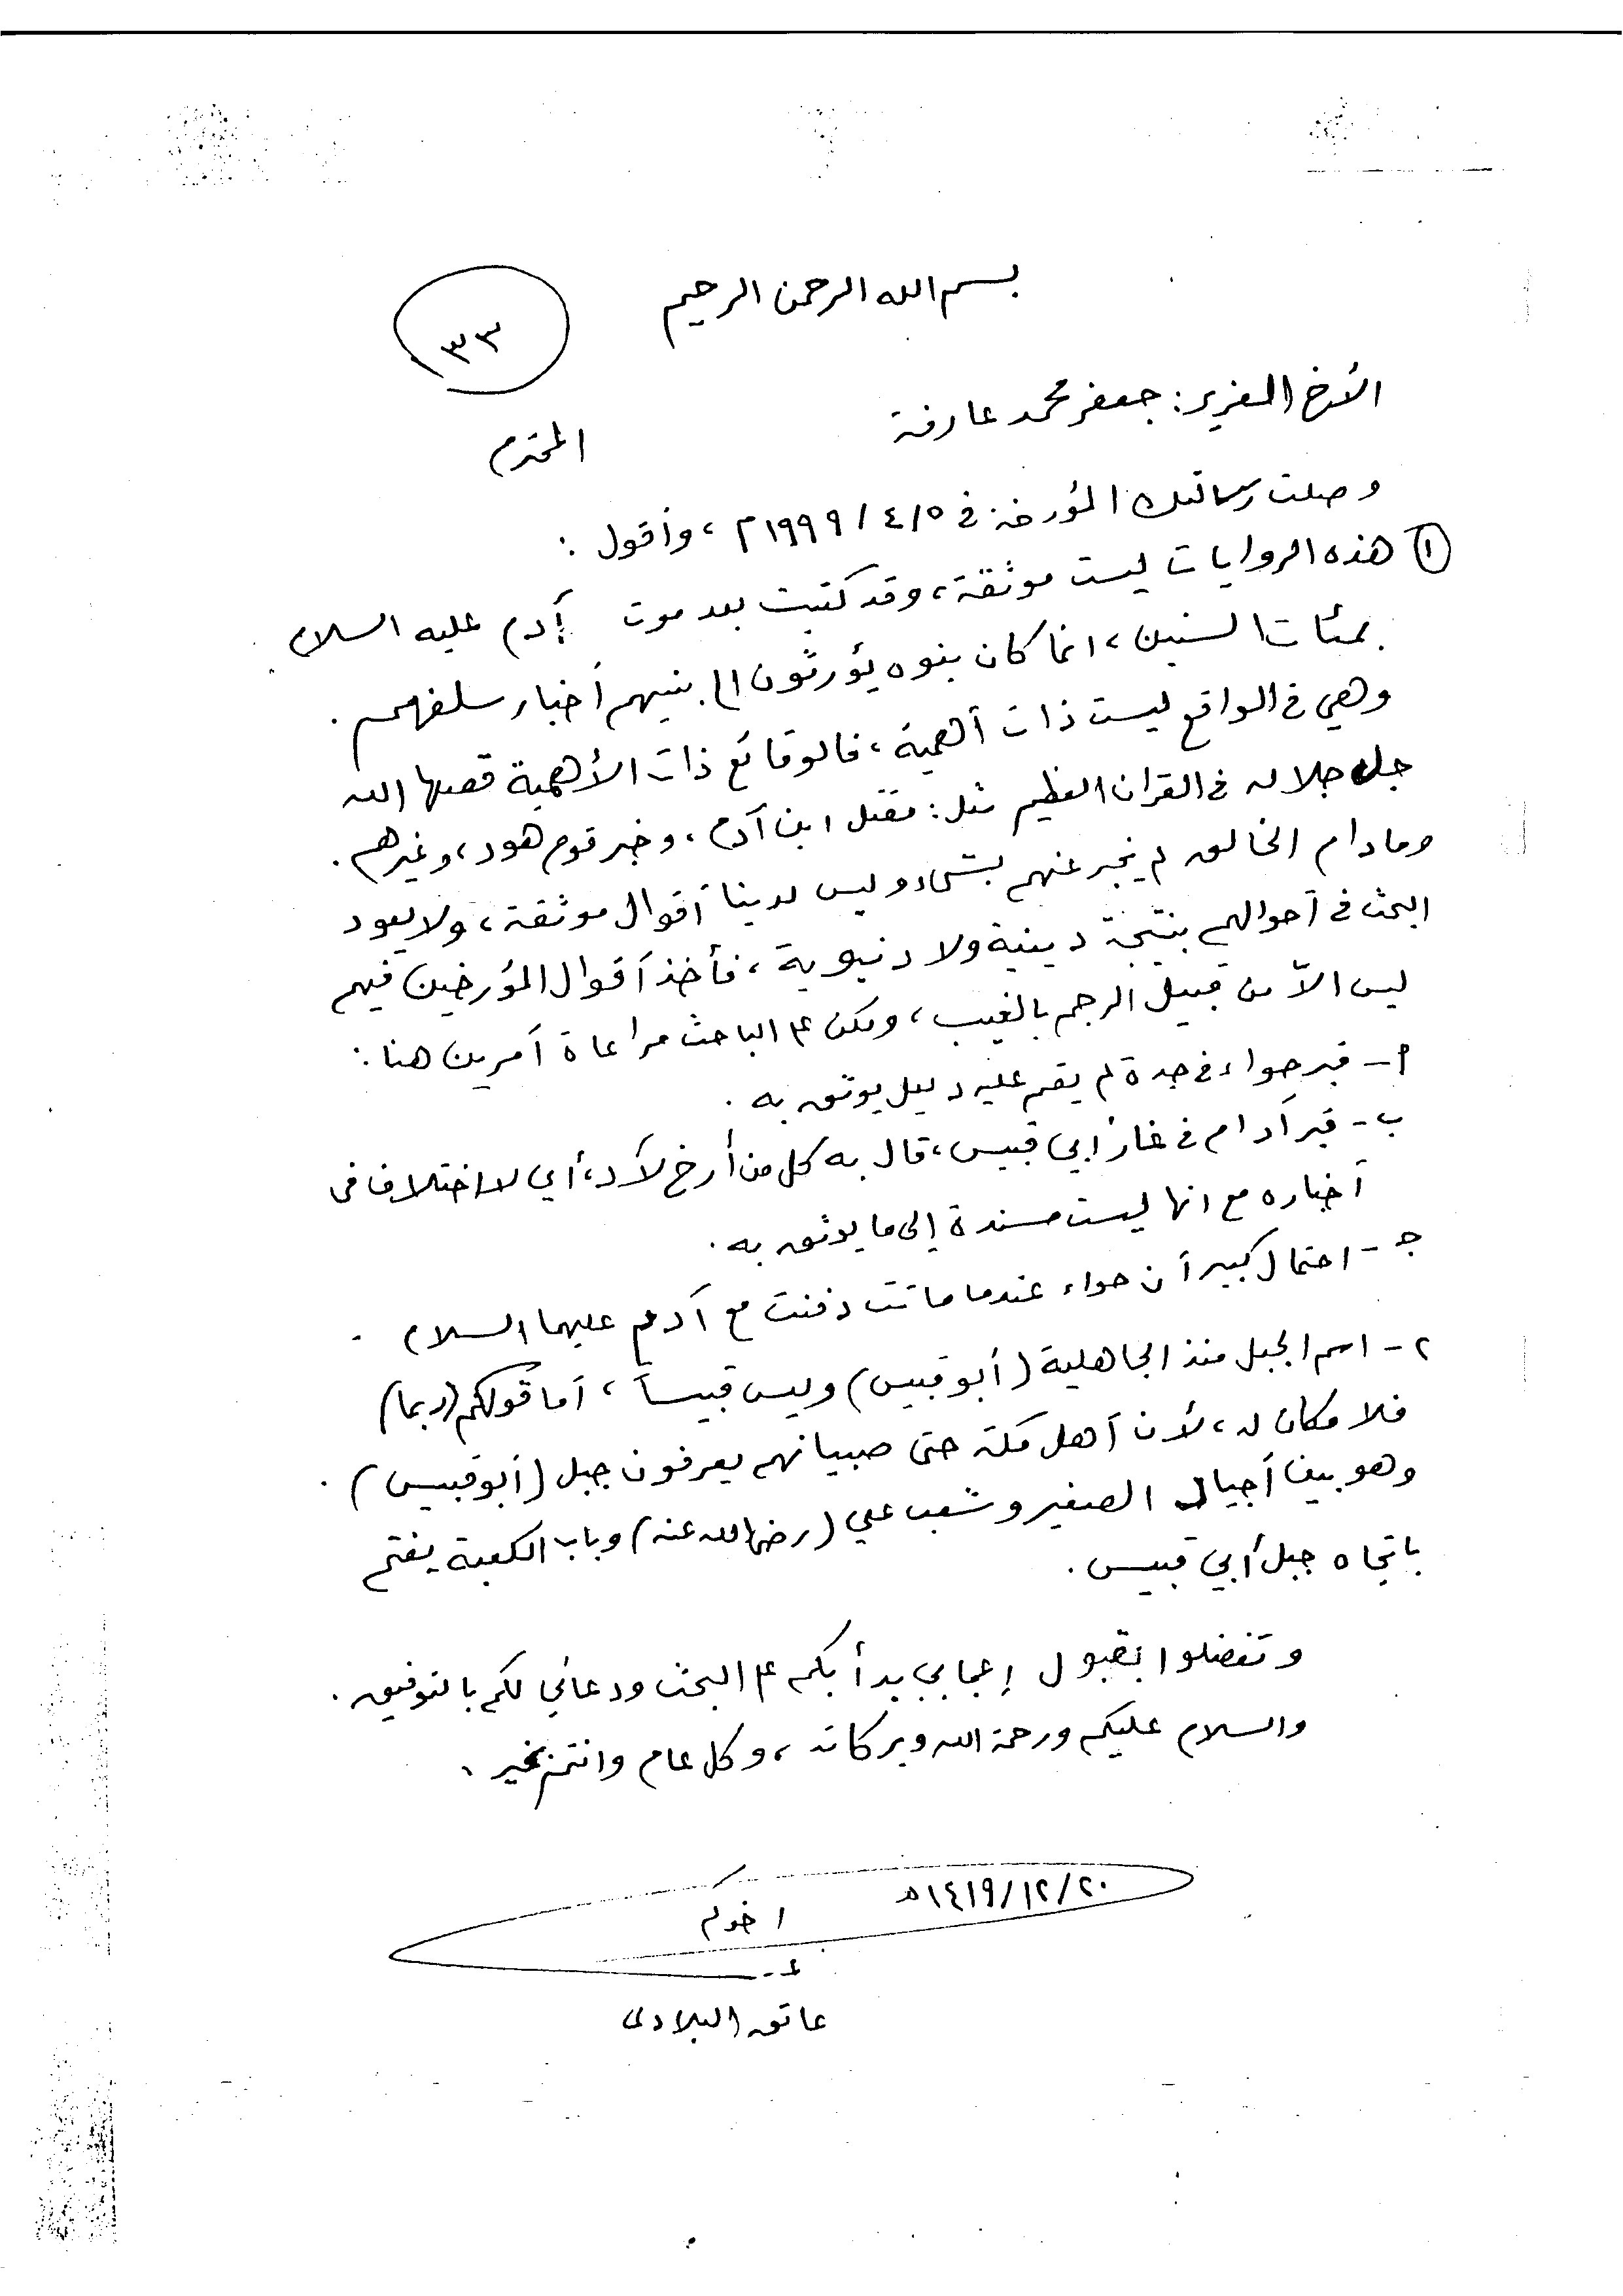 بسم الله الرحمن الرحيم
٣٣
الأخ العزيز: جعفر محمد عارفة
المحترم
وصلت رسالتك المؤرخة في ٤/٥/ ١٩٩٩م، وأقول :
① هذه الروايات ليست موثقة، وقد كتبت بعد موت آدم عليه السلام
بمئات السنين، انما كان بنوه يؤرثون الى بنيهم أخبار سلفهم .
وهي في الواقع ليست ذات أهمية، فالوقائع ذات الأهمية قصها الله
جل جلاله في القرآن العظيم مثل: مقتل ابن آدم، وخبر قوم هود، وغيرهم .
وما دام الخالق لم يخبر عنهم بشيء وليس لدينا أقوال موثقة، ولا يعود
البحث في أحوالهم بنتيجة دينية ولا دنيوية، فأخذ أقوال المؤرخين فيهم
ليس الاّ من قبيل الرجم بالغيب، ولكن على الباحث مراعاة أمرين هنا :
أ - قبر حواء في جدة لم يقم عليه دليل يوثق به .
ب - قبر آدام في غار أبي قبيس، قال به كل من أرخ لآد، أي لا اختلاف في
أخباره مع انها ليست مسندة إلى ما يوثق به .
جـ - احتمال كبير أن حواء عندما ماتت دفنت مع آدم عليهما السلام .
٢ - اسم الجبل منذ الجاهلية (أبو قبيس) وليس قبيساً، أما قولكم (ربما)
فلا مكان له، لأن أهل مكة حتى صبيانهم يعرفون جبل (أبو قبيس) .
وهو بين أجياد الصغير وشعب علي (رضي الله عنه) وباب الكعبة يفتح
باتجاه جبل أبي قبيس .
وتفضلوا بقبول إعجابي بدأبكم على البحث ودعائي لكم بالتوفيق .
والسلام عليكم ورحمة الله وبركاته، وكل عام وانتم بخير .
٢٠/ ١٢/ ١٤١٩هـ
اخوكم
عاتق البلادي